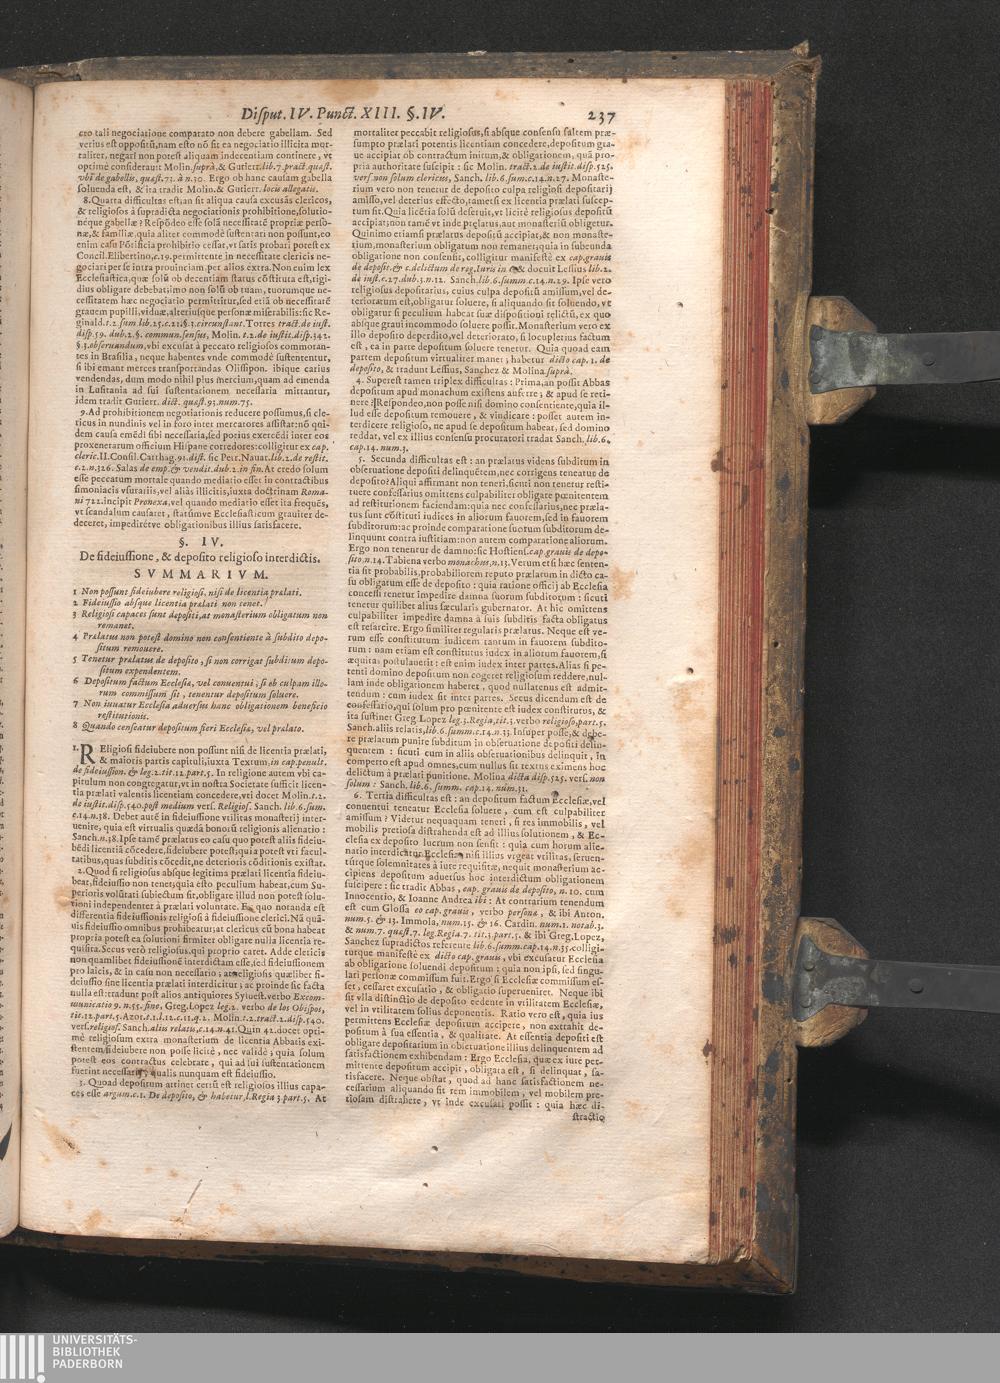 Disput. IV. Punct. XIII. §. IV. 237
cto tali negociatione comparato non debere gabellam. Sed
verius est oppositũ, nam esto nõ sit ea negociatio illicita mor-
taliter, negari non potest aliquam indecentiam continere, vt
optime considerant: Molin. suprà, & Gutierr. lib. 7. pract. quæst.
vbi de gabellis, quæst. 93. à n. 30. Ergo ob hanc causam gabella
soluenda est, & ita tradit Molin. & Gutierr. locis allegatis.
8. Quarta difficultas est, an sit aliqua causa excusãs clericos,
& religiosos à supradicta negociationis prohibitione, solutio-
néque gabellæ? Respõdeo esse solã necessitatẽ propriæ perso-
næ, & familiæ, quia aliter commodè sustentari non possunt, eo
enim casu Põtificia prohibitio cessat, vt satis probari potest ex
Concil. Elibertino, c. 19. permittente in necessitate clericis ne-
gociari per se intra prouinciam, per alios extra. Non enim lex
Ecclesiastica, quæ solũ ob decentiam status cõstituta est, rigi-
dius obligare debebat: imo non solũ ob tuam, tuorumque ne-
cessitatem hæc negociatio permittitur, sed etiã ob necessitatẽ
grauem pupilli, viduæ, alteriusque personæ miserabilis: sic Re-
ginald. t. 2. sum lib. 25. c. 21. §. 3. circunstant. Torres tract. de iust.
disp. 59. dub. 2. §. commun. sensus, Molin. t. 2. de iustit. disp. 342.
§. 3. obseruandum, vbi excusat à peccato religiosos commoran-
tes in Brasilia, neque habentes vnde commodè sustententur,
si ibi emant merces transportandas Olissipon. ibique carius
vendendas, dum modo nihil plus mercium, quam ad emenda
in Lusitania ad sui sustentationem necessaria mittantur,
idem tradit Gutierr. dict. quæst. 93. num. 75.
9. Ad prohibitionem negotiationis reducere possumus, si cle-
ricus in nundinis vel in foro inter mercatores assistat: nõ qui-
dem causa emẽdi sibi necessaria, sed potius exercẽdi inter eos
proxenetarum officium Hispane corredores: colligitur ex cap.
cleric. II. Consil. Carthag. 91. dist. sic Petr. Nauar. lib. 2. de restit.
c. 2. n. 326. Salas de emp. & vendit. dub. 2. in fin. At credo solum
esse peccatum mortale quando mediatio esset in contractibus
simoniacis vsurariis, vel aliàs illicitis, iuxta doctrinam Roma-
ni 722. incipit Pronexa, vel quando mediatio esset ita frequẽs,
vt scandalum causaret, statumve Ecclesiasticum grauiter de-
deceret, impediretve obligationibus illius satisfacere.
§. IV.
De fideiussione, & deposito religioso interdictis.
SVMMARIVM.
1 Non possunt fideiubere religiosi, nisi de licentia prælati.
2 Fideiussio absque licentia prælati non tenet.
3 Religiosi capaces sunt depositi, at monasterium obligatum non
remanet.
4 Prælatus non potest domino non consentiente à subdito depo-
situm remouere.
5 Tenetur prælatus de deposito, si non corrigat subditum depo-
situm expendentem.
6 Depositum factum Ecclesiæ, vel conuentui, si ob culpam illo-
rum commissum sit, tenentur depositum soluere.
7 Non iuuatur Ecclesia aduersus hanc obligationem beneficio
restitutionis.
8 Quando censeatur depositum fieri Ecclesiæ, vel prælato.
1. Religiosi fideiubere non possunt nisi de licentia prælati,
& maioris partis capituli, iuxta Textum, in cap. penult.
de fideiussion. & leg. 2. tit. 12. part. 5. In religione autem vbi ca-
pitulum non congregatur, vt in nostra Societate sufficit licen-
tia prælati valentis licentiam concedere, vti docet Molin. t. 2.
de iustit. disp. 540. post medium vers. Religios. Sanch. lib. 6. sum.
c. 14. n. 38. Debet autẽ in fideiussione vtilitas monasterij inter-
uenire, quia est virtualis quædã bonorũ religionis alienatio:
Sanch. n. 38. Ipse tamẽ prælatus eo casu quo potest aliis fideiu-
bẽdi licentiã cõcedere, fideiubere potest; quia potest vti facul-
tatibus, quas subditis cõcedit, ne deterioris cõditionis existat.
2. Quod si religiosus absque legitima prælati licentia fideiu-
beat, fideiussio non tenet; quia esto peculium habeat, cum Su-
perioris volũtati subiectum sit, obligare illud non potest solu-
tioni independenter à prælati voluntate. Ex quo notanda est
differentia fideiussionis religiosi à fideiussione clerici. Nã quã-
uis fideiussio omnibus prohibeatur; at clericus cũ bona habeat
propria potest ea solutioni firmiter obligare nulla licentia re-
quisita. Secus verò religiosus, qui proprio caret. Adde clericis
non quamlibet fideiussionẽ interdictam esse, sed fideiussionem
pro laicis, & in casu non necessario; at religiosis quælibet fi-
deiussio sine licentia prælati interdicitur; ac proinde sic facta
nulla est: tradunt post alios antiquiores Syluest. verbo Excom-
municatio 9. n. 55. fine, Greg. Lopez leg. 2. verbo de los Obispos,
tit. 12. part. 5. Azor. t. 1. l. 12. c. 11. q. 2. Molin. t. 2. tract. 2. disp. 540.
vers. religios. Sanch. aliis relatis, c. 14. n. 41. Quin 42. docet opti-
mè religiosum extra monasterium de licentia Abbatis exi-
stentem, fideiubere non posse licitè, nec validè; quia solum
potest eos contractus celebrare, qui ad sui sustentationem
fuerint necessarij, qualis nunquam est fideiussio.
3. Quoad depositum attinet certũ est religiosos illius capa-
ces esse argum. c. 1. De deposito, & habetur, l. Regia 3. part. 5. At
mortaliter peccabit religiosus, si absque consensu saltem præ-
sumpto prælati potentis licentiam concedere, depositum gra-
ue accipiat ob contractum initum, & obligationem, quã pro-
pria authoritate suscipit: sic Molin. tract. 2. de iustit. disp. 525.
vers. non solum clericus, Sanch. lib. 6. sum. c. 14. n. 27. Monaste-
rium vero non tenetur de deposito culpa religiosi depositarij
amisso, vel deterius effecto, tametsi ex licentia prælati suscep-
tum sit. Quia licẽtia solũ deseruit, vt licitè religiosus depositũ
accipiat; non tamẽ vt inde prælatus, aut monasteriũ obligetur.
Quinimo etiamsi prælatus depositũ accipiat, & non monaste-
rium, monasterium obligatum non remanet; quia in subeunda
obligatione non consensit, colligitur manifestè ex cap. grauis
de deposit. & c. delictum de reg. Iuris in 6. & docuit Lessius lib. 2.
de iust. c. 27. dub. 3. n. 12. Sanch. lib. 6. summ c. 14. n. 29. Ipse vero
religiosus depositarius, cuius culpa depositũ amissum, vel de-
terioratum est, obligatur soluere, si aliquando sit soluendo, vt
obligatur si peculium habeat suæ dispositioni relictũ, ex quo
absque graui incommodo soluere possit. Monasterium vero ex
illo deposito deperdito, vel deteriorato, si locupletius factum
est, ea in parte depositum soluere tenetur. Quia quoad eam
partem depositum virtualiter manet; habetur dicto cap. 1. de
deposito, & tradunt Lessius, Sanchez & Molina suprà.
4. Superest tamen triplex difficultas: Prima, an possit Abbas
depositum apud monachum existens auferre; & apud se reti-
nere? Respondeo, non posse nisi domino consentiente, quia il-
lud esse depositum remouere, & vindicare: posset autem in-
terdicere religioso, ne apud se depositum habeat, sed domino
reddat, vel ex illius consensu procuratori tradat Sanch. lib. 6.
cap. 14. num. 3.
5. Secunda difficultas est: an prælatus videns subditum in
obseruatione depositi delinquẽtem, nec corrigens teneatur de
deposito? Aliqui affirmant non teneri, sicuti non tenetur resti-
tuere confessarius omittens culpabiliter obligare pœnitentem
ad restitutionem faciendam: quia nec confessarius, nec præla-
tus sunt cõstituti iudices in aliorum fauorem, sed in fauorem
subditorum: ac proinde comparatione suorum subditorum de-
linquunt contra iustitiam: non autem comparatione aliorum.
Ergo non tenentur de damno: sic Hostiens. cap. grauis de depo-
sito, n. 14. Tabiena verbo monachus, n. 13. Verum etsi hæc senten-
tia sit probabilis, probabiliorem reputo prælatum in dicto ca-
su obligatum esse de deposito: quia ratione officij ab Ecclesia
concessi tenetur impedire damna suorum subditorum: sicuti
tenetur quilibet alius sæcularis gubernator. At hic omittens
culpabiliter impedire damna à suis subditis facta obligatus
est resarcire. Ergo similiter regularis prælatus. Neque est ve-
rum esse constitutum iudicem tantum in fauorem subdito-
rum: nam etiam est constitutus iudex in aliorum fauorem, si
æquitas postulauerit: est enim iudex inter partes. Alias si pe-
tenti domino depositum non cogeret religiosum reddere, nul-
lam inde obligationem haberet, quod nullatenus est admit-
tendum: cum iudex sit inter partes. Secus dicendum est de
confessario, qui solum pro pœnitente est iudex constitutus, &
ita sustinet Greg. Lopez leg. 3. Regia, tit. 3. verbo religioso, part. 5.
Sanch. aliis relatis, lib. 6. summ. c. 14. n. 33. Insuper posse, & debe-
re prælatum punire subditum in obseruatione depositi delin-
quentem: sicuti cum in aliis obseruationibus delinquit, in
comperto est apud omnes, cum nullus sit textus eximens hoc
delictum à prælati punitione. Molina dicta disp. 525. vers. non
solum: Sanch. lib. 6. summ. cap. 14. num. 31.
6. Tertia difficultas est: an depositum factum Ecclesiæ, vel
conuentui teneatur Ecclesia soluere, cum est culpabiliter
amissum? Videtur nequaquam teneri, si res immobilis, vel
mobilis pretiosa distrahenda est ad illius solutionem, & Ec-
clesia ex deposito lucrum non sensit: quia cum horum alie-
natio interdicatur Ecclesiæ, nisi illius vrgeat vtilitas, seruen-
túrque solemnitates à iure requisitæ, nequit monasterium ac-
cipiens depositum aduersus hoc interdictum obligationem
suscipere: sic tradit Abbas, cap. grauis de deposito, n. 10. cum
Innocentio, & Ioanne Andrea ibi: At contrarium tenendum
est cum Glossa eo cap. grauis, verbo persona, & ibi Anton.
num. 5. & 13. Immola, num. 15. & 16. Cardin. num. 1. notab. 3.
& num. 7. quæst. 7. leg. Regia 7. tit. 3. part. 5. & ibi Greg. Lopez,
Sanchez supradictos referente lib. 6. summ. cap. 14. n. 35. colligi-
turque manifestè ex dicto cap. grauis, vbi excusatur Ecclesia
ab obligatione soluendi depositum: quia non ipsi, sed singu-
lari personæ commissum fuit. Ergo si Ecclesiæ commissum es-
set, cessaret excusatio, & obligatio superueniret. Neque ibi
sit vlla distinctio de deposito cedente in vtilitatem Ecclesiæ,
vel in vtilitatem solius deponentis. Ratio vero est, quia ius
permittens Ecclesiæ depositum accipere, non extrahit de-
positum à sua essentia, & qualitate. At essentia depositi est
obligare depositarium in obseruatione illius delinquentem ad
satisfactionem exhibendam: Ergo Ecclesia, quæ ex iure per-
mittente depositum accipit, obligata est, si delinquat, sa-
tisfacere. Neque obstat, quod ad hanc satisfactionem ne-
cessarium aliquando sit rem immobilem, vel mobilem pre-
tiosam distrahere, vt inde excusari possit: quia hæc di-
stractio
UNIVERSITÄTS-
BIBLIOTHEK
PADERBORN